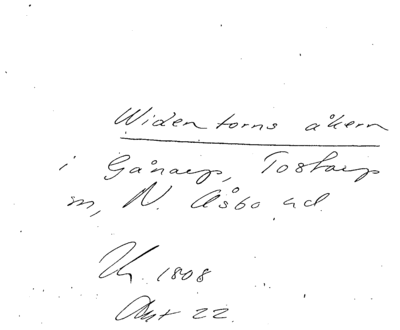 Widentorns åkern
i Gånarp, Tostarp
m, N. Åsbo hd.
1808
Akt 22.